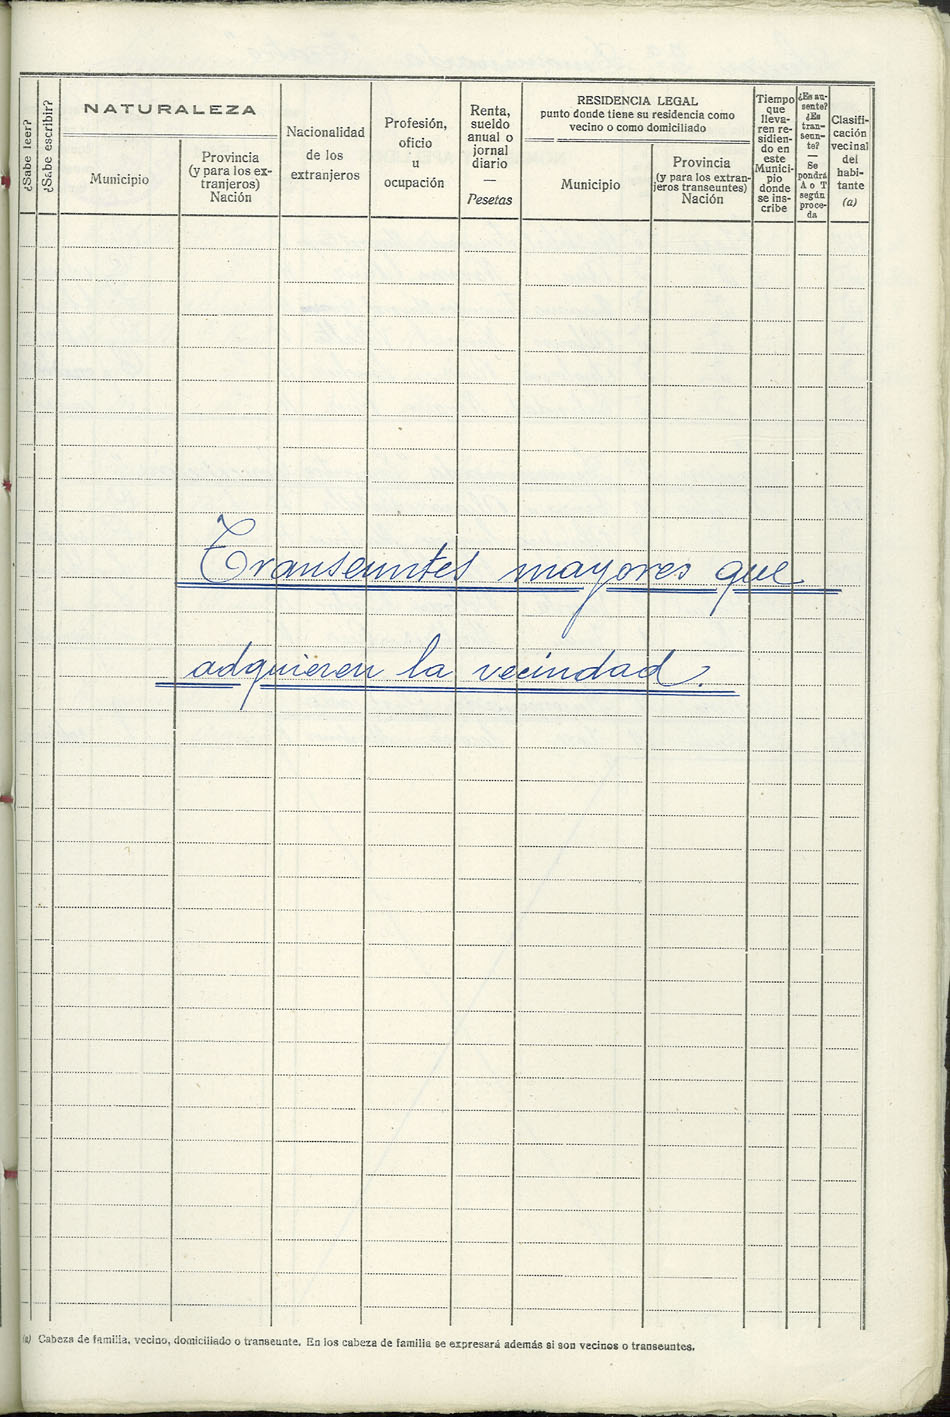 ¿Sabe leer?
¿Sabe escribir?
NATURALEZA
Municipio
Provincia
(y para los ex-
tranjeros)
Nación
Nacionalidad
de los
extranjeros
Profesión,
oficio
u
ocupación
Renta,
sueldo
anual o
jornal
diario
—
Pesetas
RESIDENCIA LEGAL
punto donde tiene su residencia como
vecino o como domiciliado
Municipio
Provincia
(y para los extran-
jeros transeuntes)
Nación
Tiempo
que
lleva-
ren re-
sidien-
do en
este
Munici-
pio
donde
se ins-
cribe
¿Es au-
sente?
¿Es
tran-
seun-
te?
—
Se
pondrá
A o T
según
proce-
da
Clasifi-
cación
vecinal
del
habi-
tante
(a)
Transeuntes mayores que
adquieren la vecindad.
(a) Cabeza de familia, vecino, domiciliado o transeunte. En los cabeza de familia se expresará además si son vecinos o transeuntes.